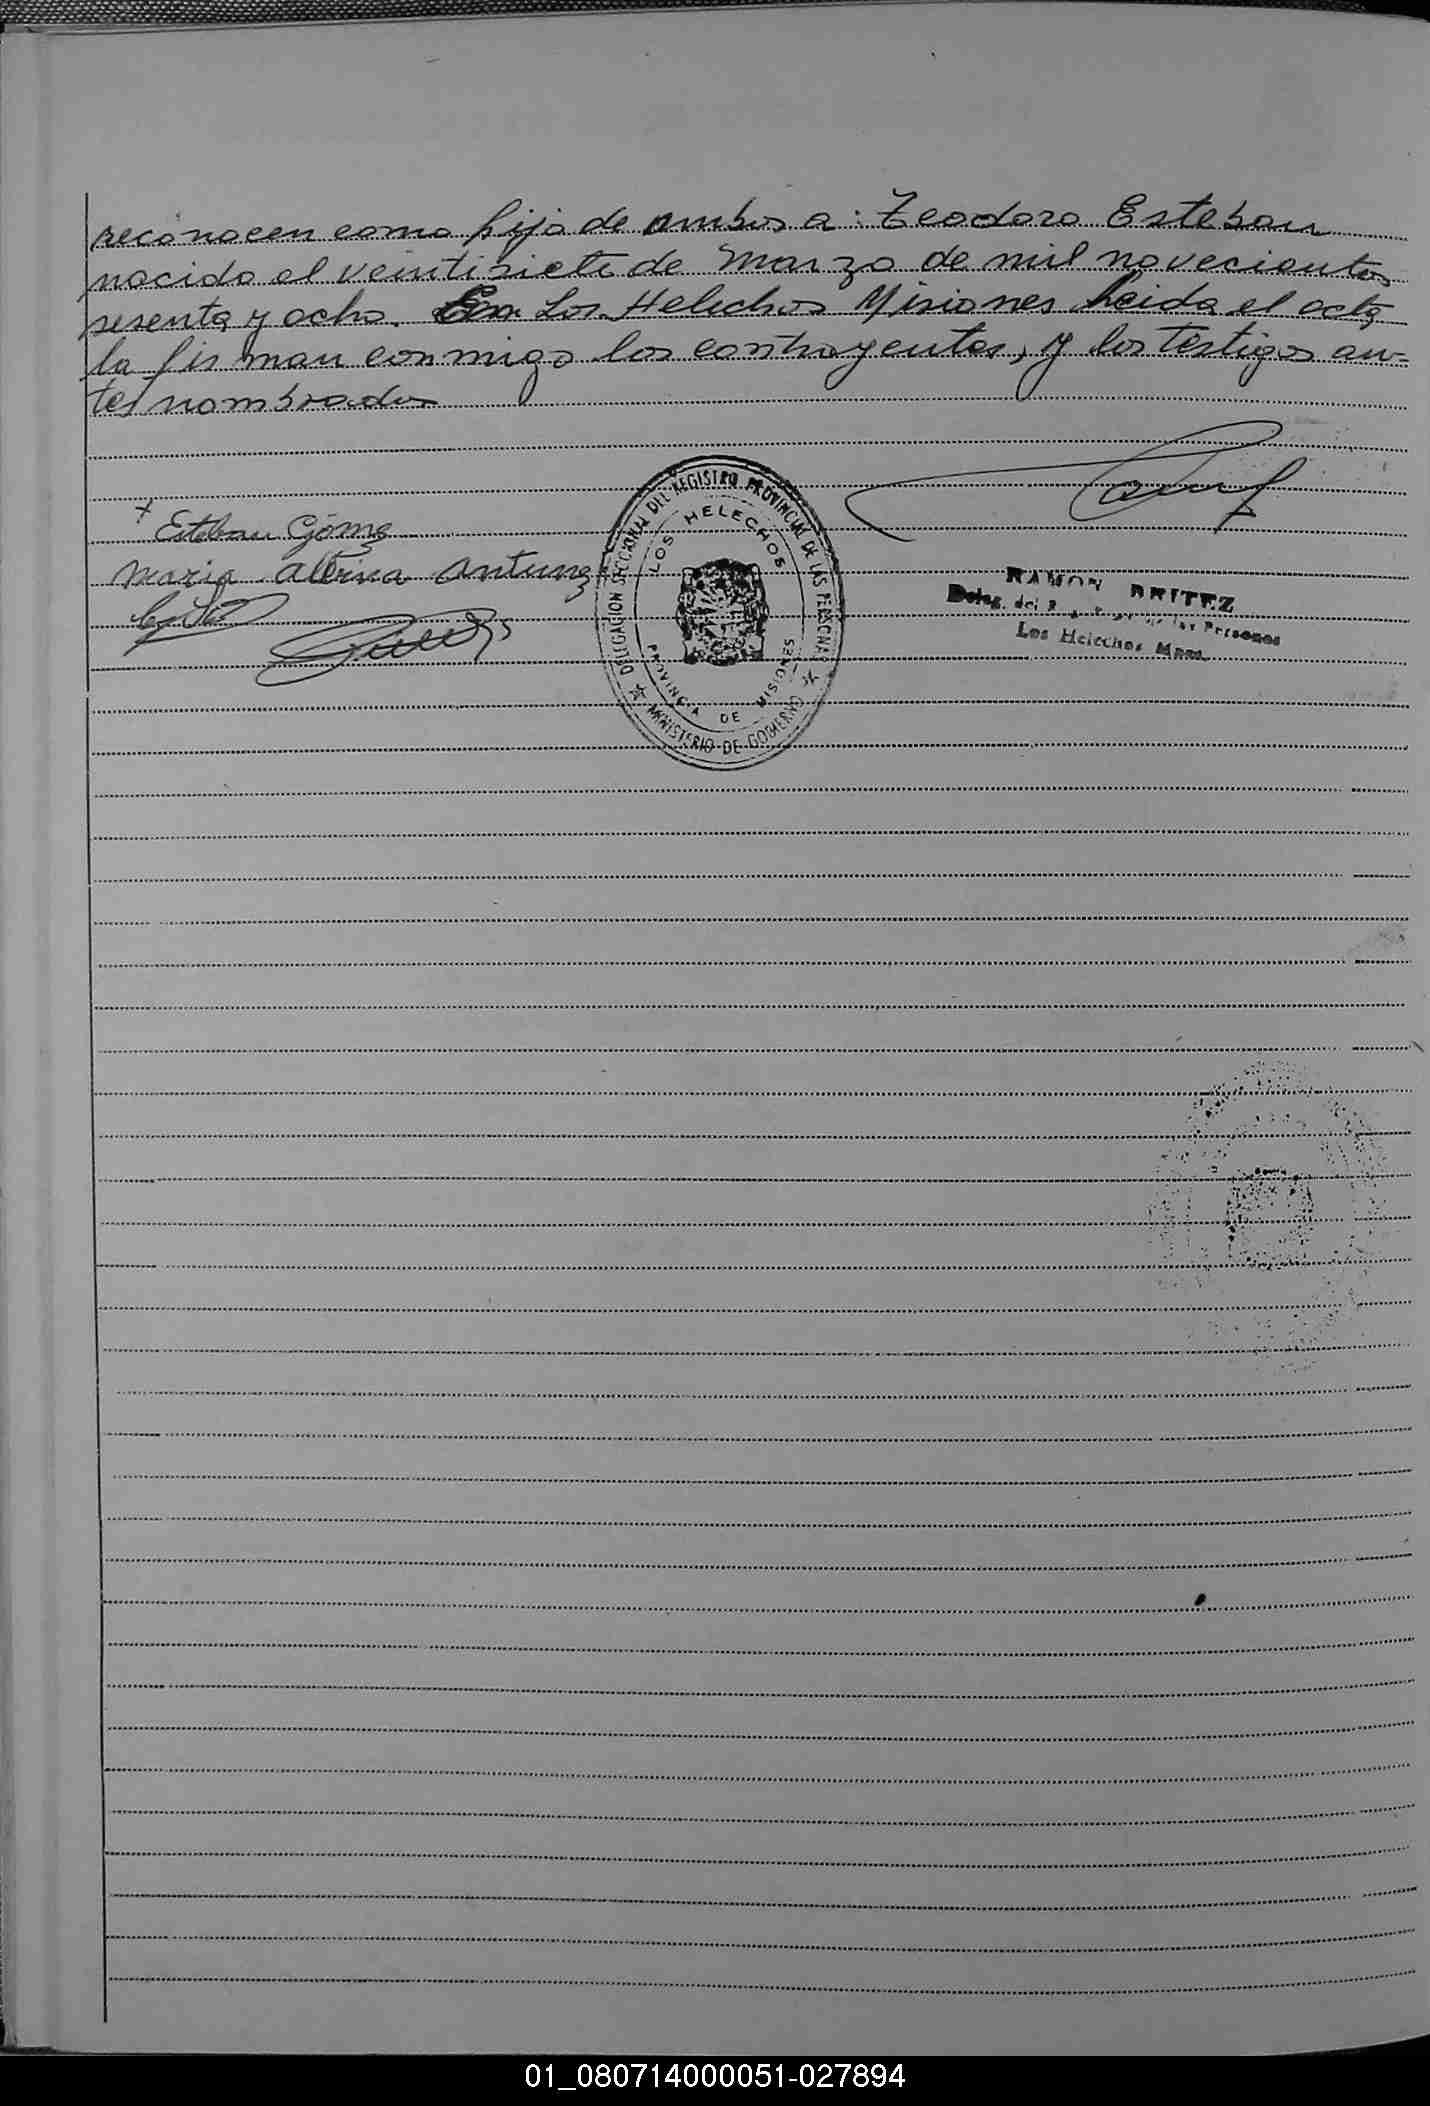 reconocen como hijo de ambos a: Teodoro Esteban
nacido el veintisiete de Marzo de mil novecientos
sesenta y ocho. En Los Helechos Misiones Leida el acta
la firman conmigo los contrayentes, y los testigos an-
tes nombrados
+
Esteban Gómez
Maria Albina Antunez
DELEGACION SECCIONAL DEL REGISTRO PROVINCIAL DE LAS PERSONAS
LOS HELECHOS
PROVINCIA DE MISIONES
MINISTERIO DE GOBIERNO
RAMON BRITEZ
Deleg. del Reg. de las Personas
Los Helechos Mnes.
01_080714000051-027894